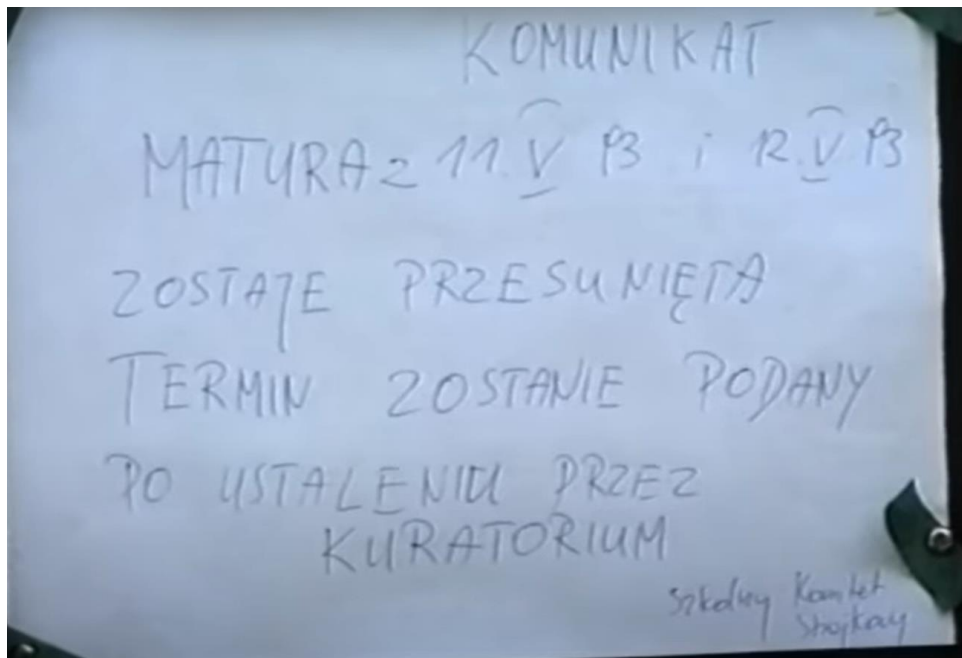 KOMUNIKAT
MATURA z 11.V 93 i 12.V 93
ZOSTAJE PRZESUNIĘTA
TERMIN ZOSTANIE PODANY
PO USTALENIU PRZEZ
KURATORIUM
Szkolny Komitet
Strajkowy